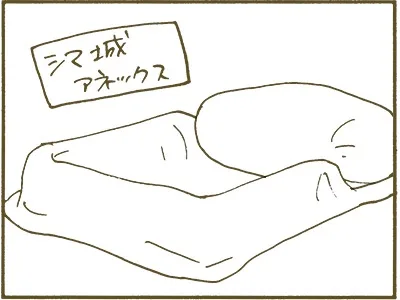 シマ城
アネックス